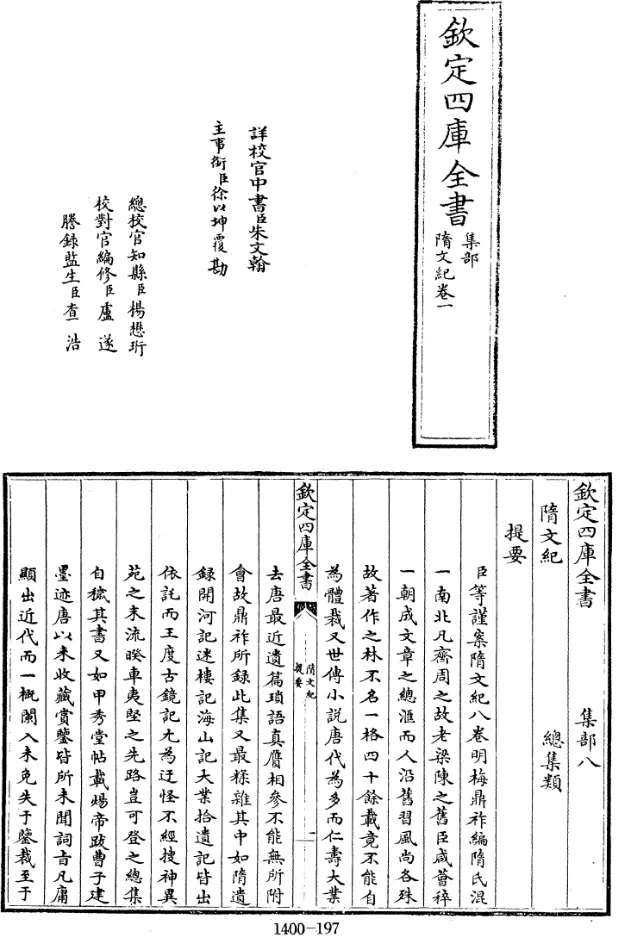 欽定四庫全書
集部
隋文紀卷一
詳校官中書臣朱文翰
主事銜臣徐以坤覆勘
總校官知縣臣楊懋珩
校對官編修臣盧遂
謄錄監生臣查浩
欽定四庫全書 集部八
隋文紀 總集類
提要
臣等謹案隋文紀八卷明梅鼎祚編隋氏混
一南北凡齊周之故老梁陳之舊臣咸薈稡
一朝成文章之總滙而人沿舊習風尚各殊
故著作之林不名一格四十餘載竟不能自
為體裁又世傳小説唐代為多而仁壽大業
欽定四庫全書 隋文紀 提要 一
去唐最近遺篇瑣語真贗相參不能無所附
會故鼎祚所録此集又最稱雜其中如隋遺
録開河記迷樓記海山記大業拾遺記皆出
依託而王度古鏡記尤為迂怪不經搜神異
苑之末流暌車夷堅之先路豈可登之總集
自穢其書又如甲秀堂帖載煬帝跋曹子建
墨迹唐以来收藏賞鑒皆所未聞詞旨凡庸
顯出近代而一概闌入未免失于鑒裁至于
1400-197